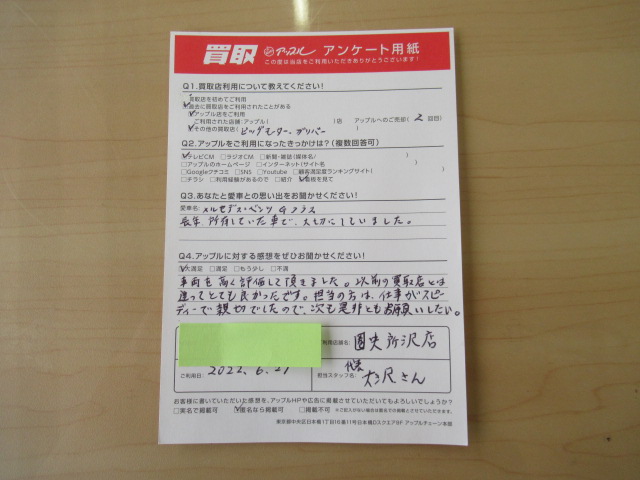 買取 アップル アンケート用紙
この度は当店をご利用いただきありがとうございます!
Q1.買取店利用について教えてください!
□買取店を初めてご利用
☑過去に買取店をご利用されたことがある
☑アップル店をご利用
ご利用された店舗:アップル( )店 アップルへのご売却( 2 回目)
☑その他の買取店(ビッグモーター、ガリバー )
Q2.アップルをご利用になったきっかけは?(複数回答可)
☑テレビCM □ラジオCM □新聞・雑誌(媒体名/ )
□アップルのホームページ □インターネット(サイト名 )
□Googleクチコミ □SNS □Youtube □顧客満足度ランキングサイト( )
□チラシ □利用経験があるので □紹介 ☑看板を見て
Q3.あなたと愛車との思い出をお聞かせください!
愛車名:メルセデス・ベンツ Gクラス
長年所有していた車で、大切にしていました。
Q4.アップルに対する感想をぜひお聞かせください!
☑大満足 □満足 □もう少し □不満
車両を高く評価して頂きました。以前の買取店とは
違ってとても良かったです。担当の方は、仕事がスピー
ディーで親切でしたので、次も是非ともお願いしたい。
利用店舗名:関東所沢店
ご利用日: 2022.6.27
担当スタッフ名:代表 大沢さん
お客様に書いていただいた感想を、アップルHPや広告に掲載させていただいてもよろしいでしょうか?
□実名で掲載可 ☑匿名なら掲載可 □掲載不可 ※ご記入がない場合は匿名での掲載とさせていただきます。
東京都中央区日本橋1丁目16番11号日本橋Dスクエア8F アップルチェーン本部